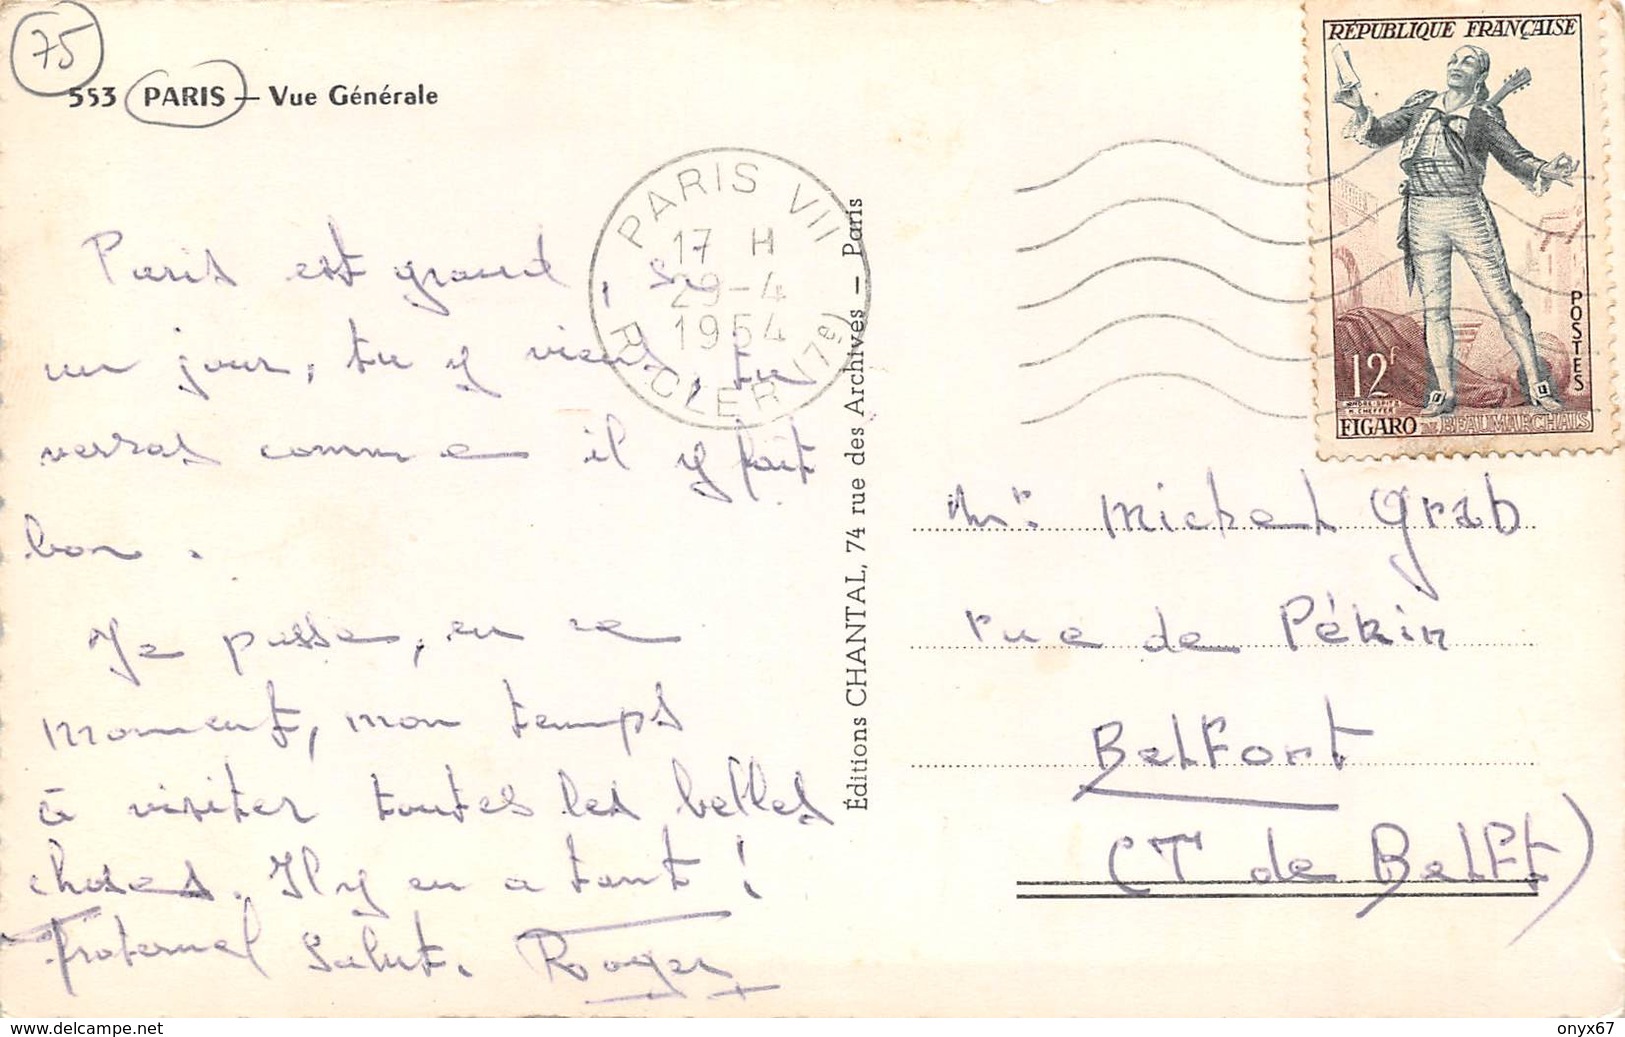 75
553 PARIS — Vue Générale
Paris est grand, si
un jour, tu y viens, tu
verras comme il y fait
bon.
Je passe, en ce
moment, mon temps
à visiter toutes les belles
choses. Il y en a tant !
fraternel salut. Roger
PARIS VII
17 H
29-4
1954
R. CLER (7e)
Éditions CHANTAL, 74 rue des Archives — Paris
RÉPUBLIQUE FRANÇAISE
POSTES
12f
FIGARO DE BEAUMARCHAIS
Mr. Michel Grab
rue de Pékin
Belfort
(T de Belft)
www.delcampe.net
onyx67